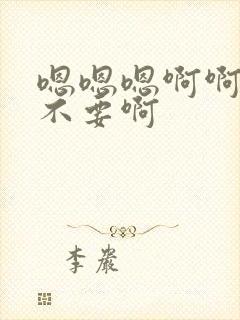 嗯嗯嗯啊啊
不要啊
李岩